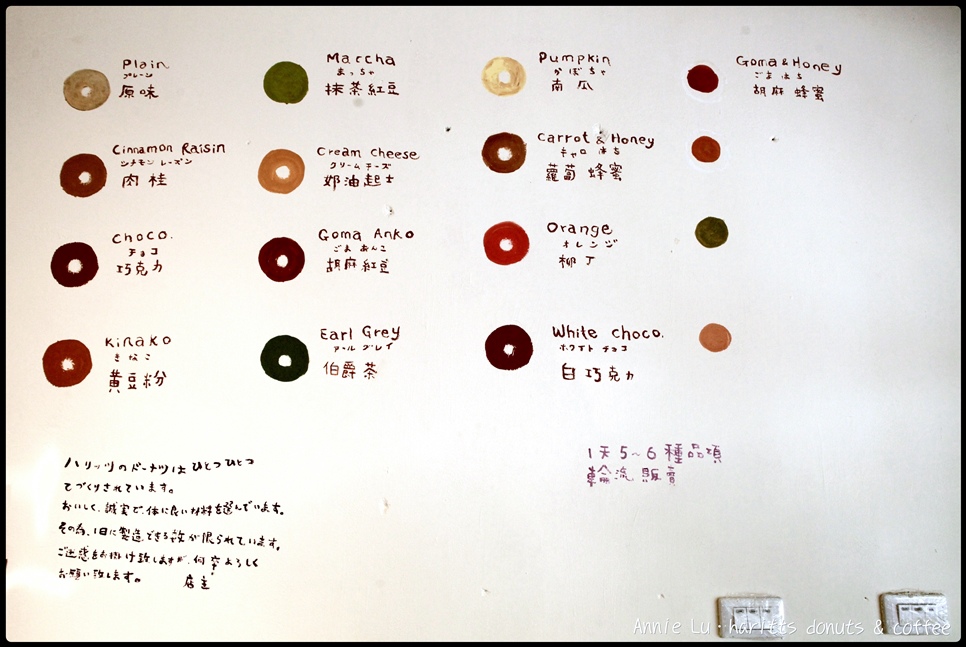 Plain
プレーン
原味
Marcha
まっちゃ
抹茶紅豆
Pumpkin
かぼちゃ
南瓜
Goma & Honey
ごま はち
胡麻 蜂蜜
Cinnamon Raisin
シナモン レーズン
肉桂
Cream Cheese
クリーム チーズ
奶油起士
Carrot & Honey
キャロ はち
蘿蔔 蜂蜜
Choco.
チョコ
巧克力
Goma Anko
ごま あんこ
胡麻紅豆
Orange
オレンジ
柳丁
Kinako
きなこ
黄豆粉
Earl Grey
アール グレイ
伯爵茶
White Choco.
ホワイト チョコ
白 巧克力
ハリッツのドーナツは ひとつひとつ
てづくりされています。
おいしく、誠実で、体に良い材料を選んでいます。
その為、1日に製造できる数が限られています。
ご迷惑をお掛け致しますが、何卒よろしく
お願い致します。 店主
1天5~6種品項
輪流 販賣
Annie Lu · haritts donuts & coffee